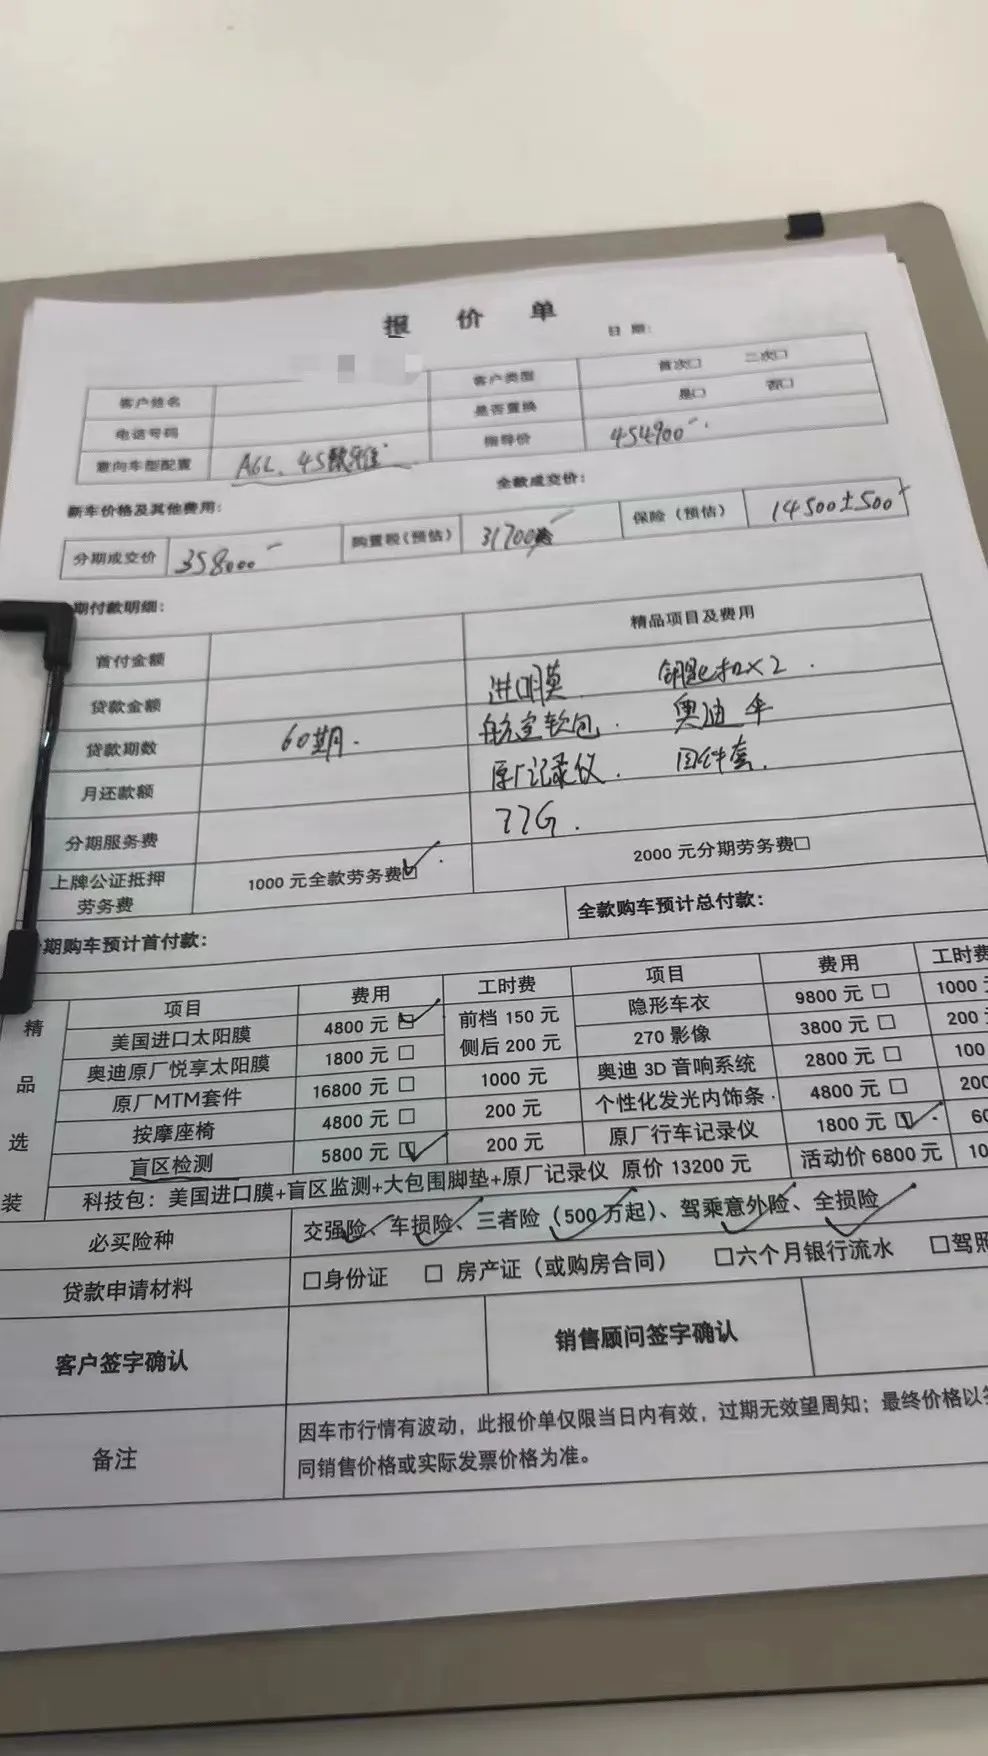 报 价 单
日 期：
客户姓名 客户类型 首次□ 二次□
电话号码 是否置换 是□ 否□
意向车型配置 A6L、45臻选 指导价 454900
新车价格及其他费用： 全款成交价：
分期成交价 358000 购置税（预估） 31700 保险（预估） 14500±500
期付款明细：
首付金额 精品项目及费用
贷款金额 进口膜 钥匙扣×2
贷款期数 60期 航空软包 奥迪伞
月还款额 原厂记录仪 四件套
分期服务费 77G
上牌公证抵押劳务费 1000 元全款劳务费☑ 2000 元分期劳务费□
期购车预计首付款： 全款购车预计总付款：
精品选装
项目 费用 工时费 项目 费用 工时费
美国进口太阳膜 4800 元☑ 前档 150 元 侧后 200 元 隐形车衣 9800 元□ 1000
奥迪原厂悦享太阳膜 1800 元□ 270 影像 3800 元□ 200
原厂MTM套件 16800 元□ 1000 元 奥迪 3D 音响系统 2800 元□ 100
按摩座椅 4800 元□ 200 元 个性化发光内饰条 4800 元□ 200
盲区检测 5800 元☑ 200 元 原厂行车记录仪 1800 元☑
科技包：美国进口膜+盲区监测+大包围脚垫+原厂记录仪 原价 13200 元 活动价 6800 元
必买险种 交强险、车损险、三者险（500 万起）、驾乘意外险、全损险
贷款申请材料 □身份证 □ 房产证（或购房合同） □六个月银行流水 □驾照
客户签字确认 销售顾问签字确认
备注 因车市行情有波动，此报价单仅限当日内有效，过期无效望周知；最终价格以
同销售价格或实际发票价格为准。